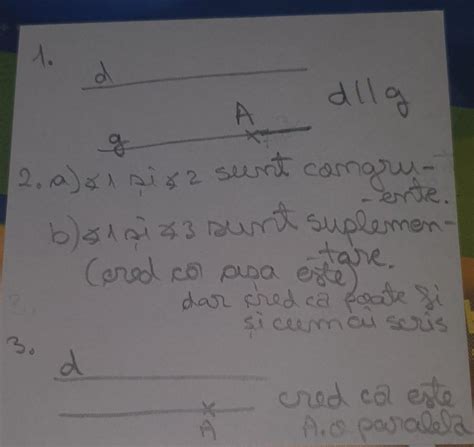 1.
d
A
g
d||g
2. a) ∢1 și ∢2 sunt congru-
-ente.
b) ∢1 și ∢3 sunt suplemen-
-tare.
(cred că așa este)
dar cred că poate fi
și cum ai scris
3.
d
A
cred că este
A.o paralelă